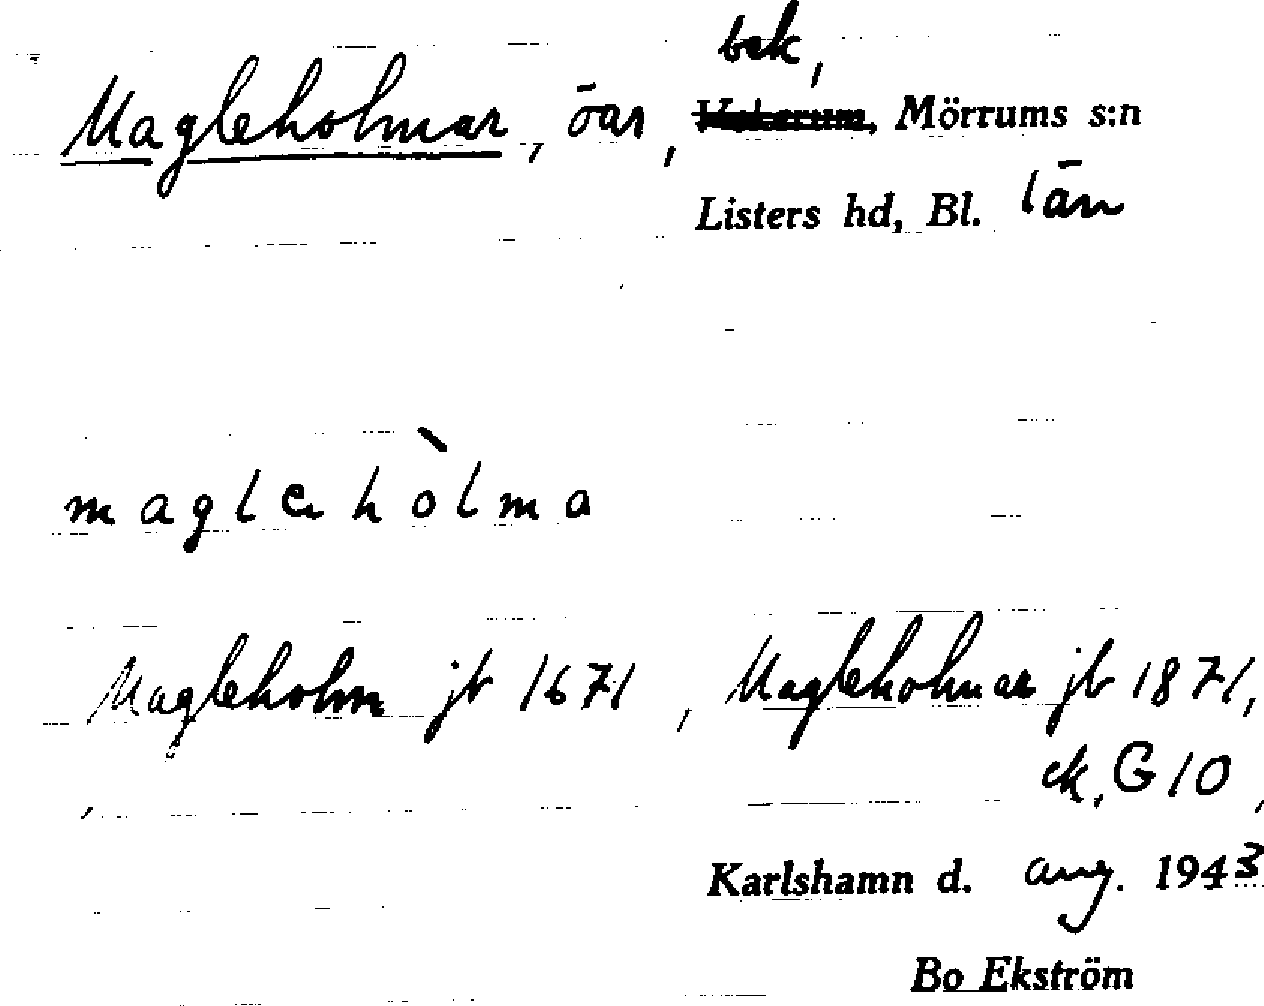 bek,
Magleholmar, öar, Vekerum, Mörrums s:n
Listers hd, Bl. län
magleholma
Magleholm jb 1671, Magleholmar jb 1871,
ek. G10,
Karlshamn d. aug. 1943
Bo Ekström